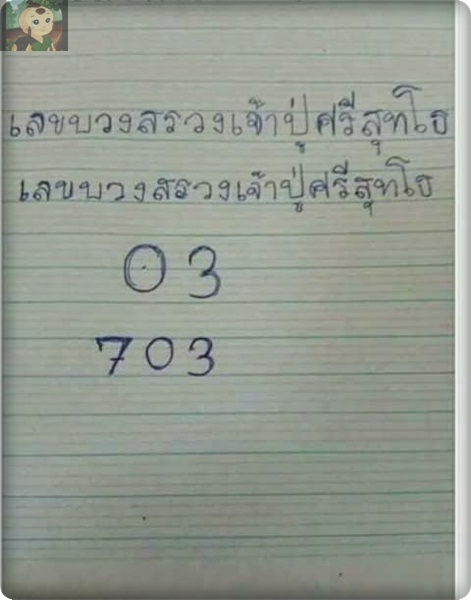 เลขบวงสรวงเจ้าปู่ศรีสุทโธ
เลขบวงสรวงเจ้าปู่ศรีสุทโธ
03
703